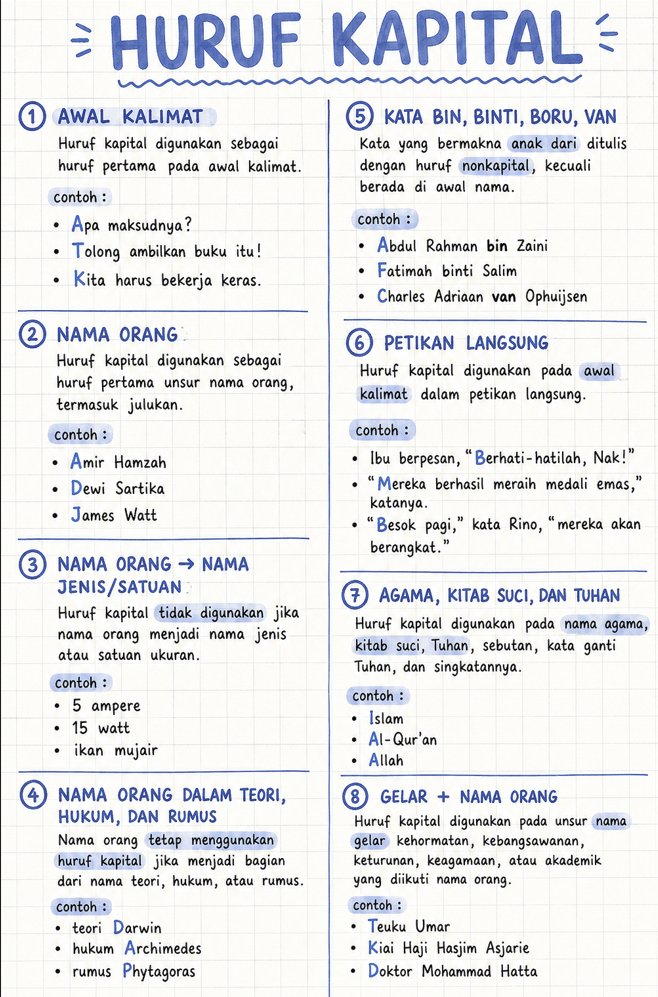 HURUF KAPITAL
1 AWAL KALIMAT
Huruf kapital digunakan sebagai
huruf pertama pada awal kalimat.
contoh :
• Apa maksudnya?
• Tolong ambilkan buku itu!
• Kita harus bekerja keras.
2 NAMA ORANG
Huruf kapital digunakan sebagai
huruf pertama unsur nama orang,
termasuk julukan.
contoh :
• Amir Hamzah
• Dewi Sartika
• James Watt
3 NAMA ORANG → NAMA
JENIS/SATUAN
Huruf kapital tidak digunakan jika
nama orang menjadi nama jenis
atau satuan ukuran.
contoh :
• 5 ampere
• 15 watt
• ikan mujair
4 NAMA ORANG DALAM TEORI,
HUKUM, DAN RUMUS
Nama orang tetap menggunakan
huruf kapital jika menjadi bagian
dari nama teori, hukum, atau rumus.
contoh :
• teori Darwin
• hukum Archimedes
• rumus Phytagoras
5 KATA BIN, BINTI, BORU, VAN
Kata yang bermakna anak dari ditulis
dengan huruf nonkapital, kecuali
berada di awal nama.
contoh :
• Abdul Rahman bin Zaini
• Fatimah binti Salim
• Charles Adriaan van Ophuijsen
6 PETIKAN LANGSUNG
Huruf kapital digunakan pada awal
kalimat dalam petikan langsung.
contoh :
• Ibu berpesan, “Berhati-hatilah, Nak!”
• “Mereka berhasil meraih medali emas,”
katanya.
• “Besok pagi,” kata Rino, “mereka akan
berangkat.”
7 AGAMA, KITAB SUCI, DAN TUHAN
Huruf kapital digunakan pada nama agama,
kitab suci, Tuhan, sebutan, kata ganti
Tuhan, dan singkatannya.
contoh :
• Islam
• Al-Qur'an
• Allah
8 GELAR + NAMA ORANG
Huruf kapital digunakan pada unsur nama
gelar kehormatan, kebangsawanan,
keturunan, keagamaan, atau akademik
yang diikuti nama orang.
contoh :
• Teuku Umar
• Kiai Haji Hasjim Asjarie
• Doktor Mohammad Hatta